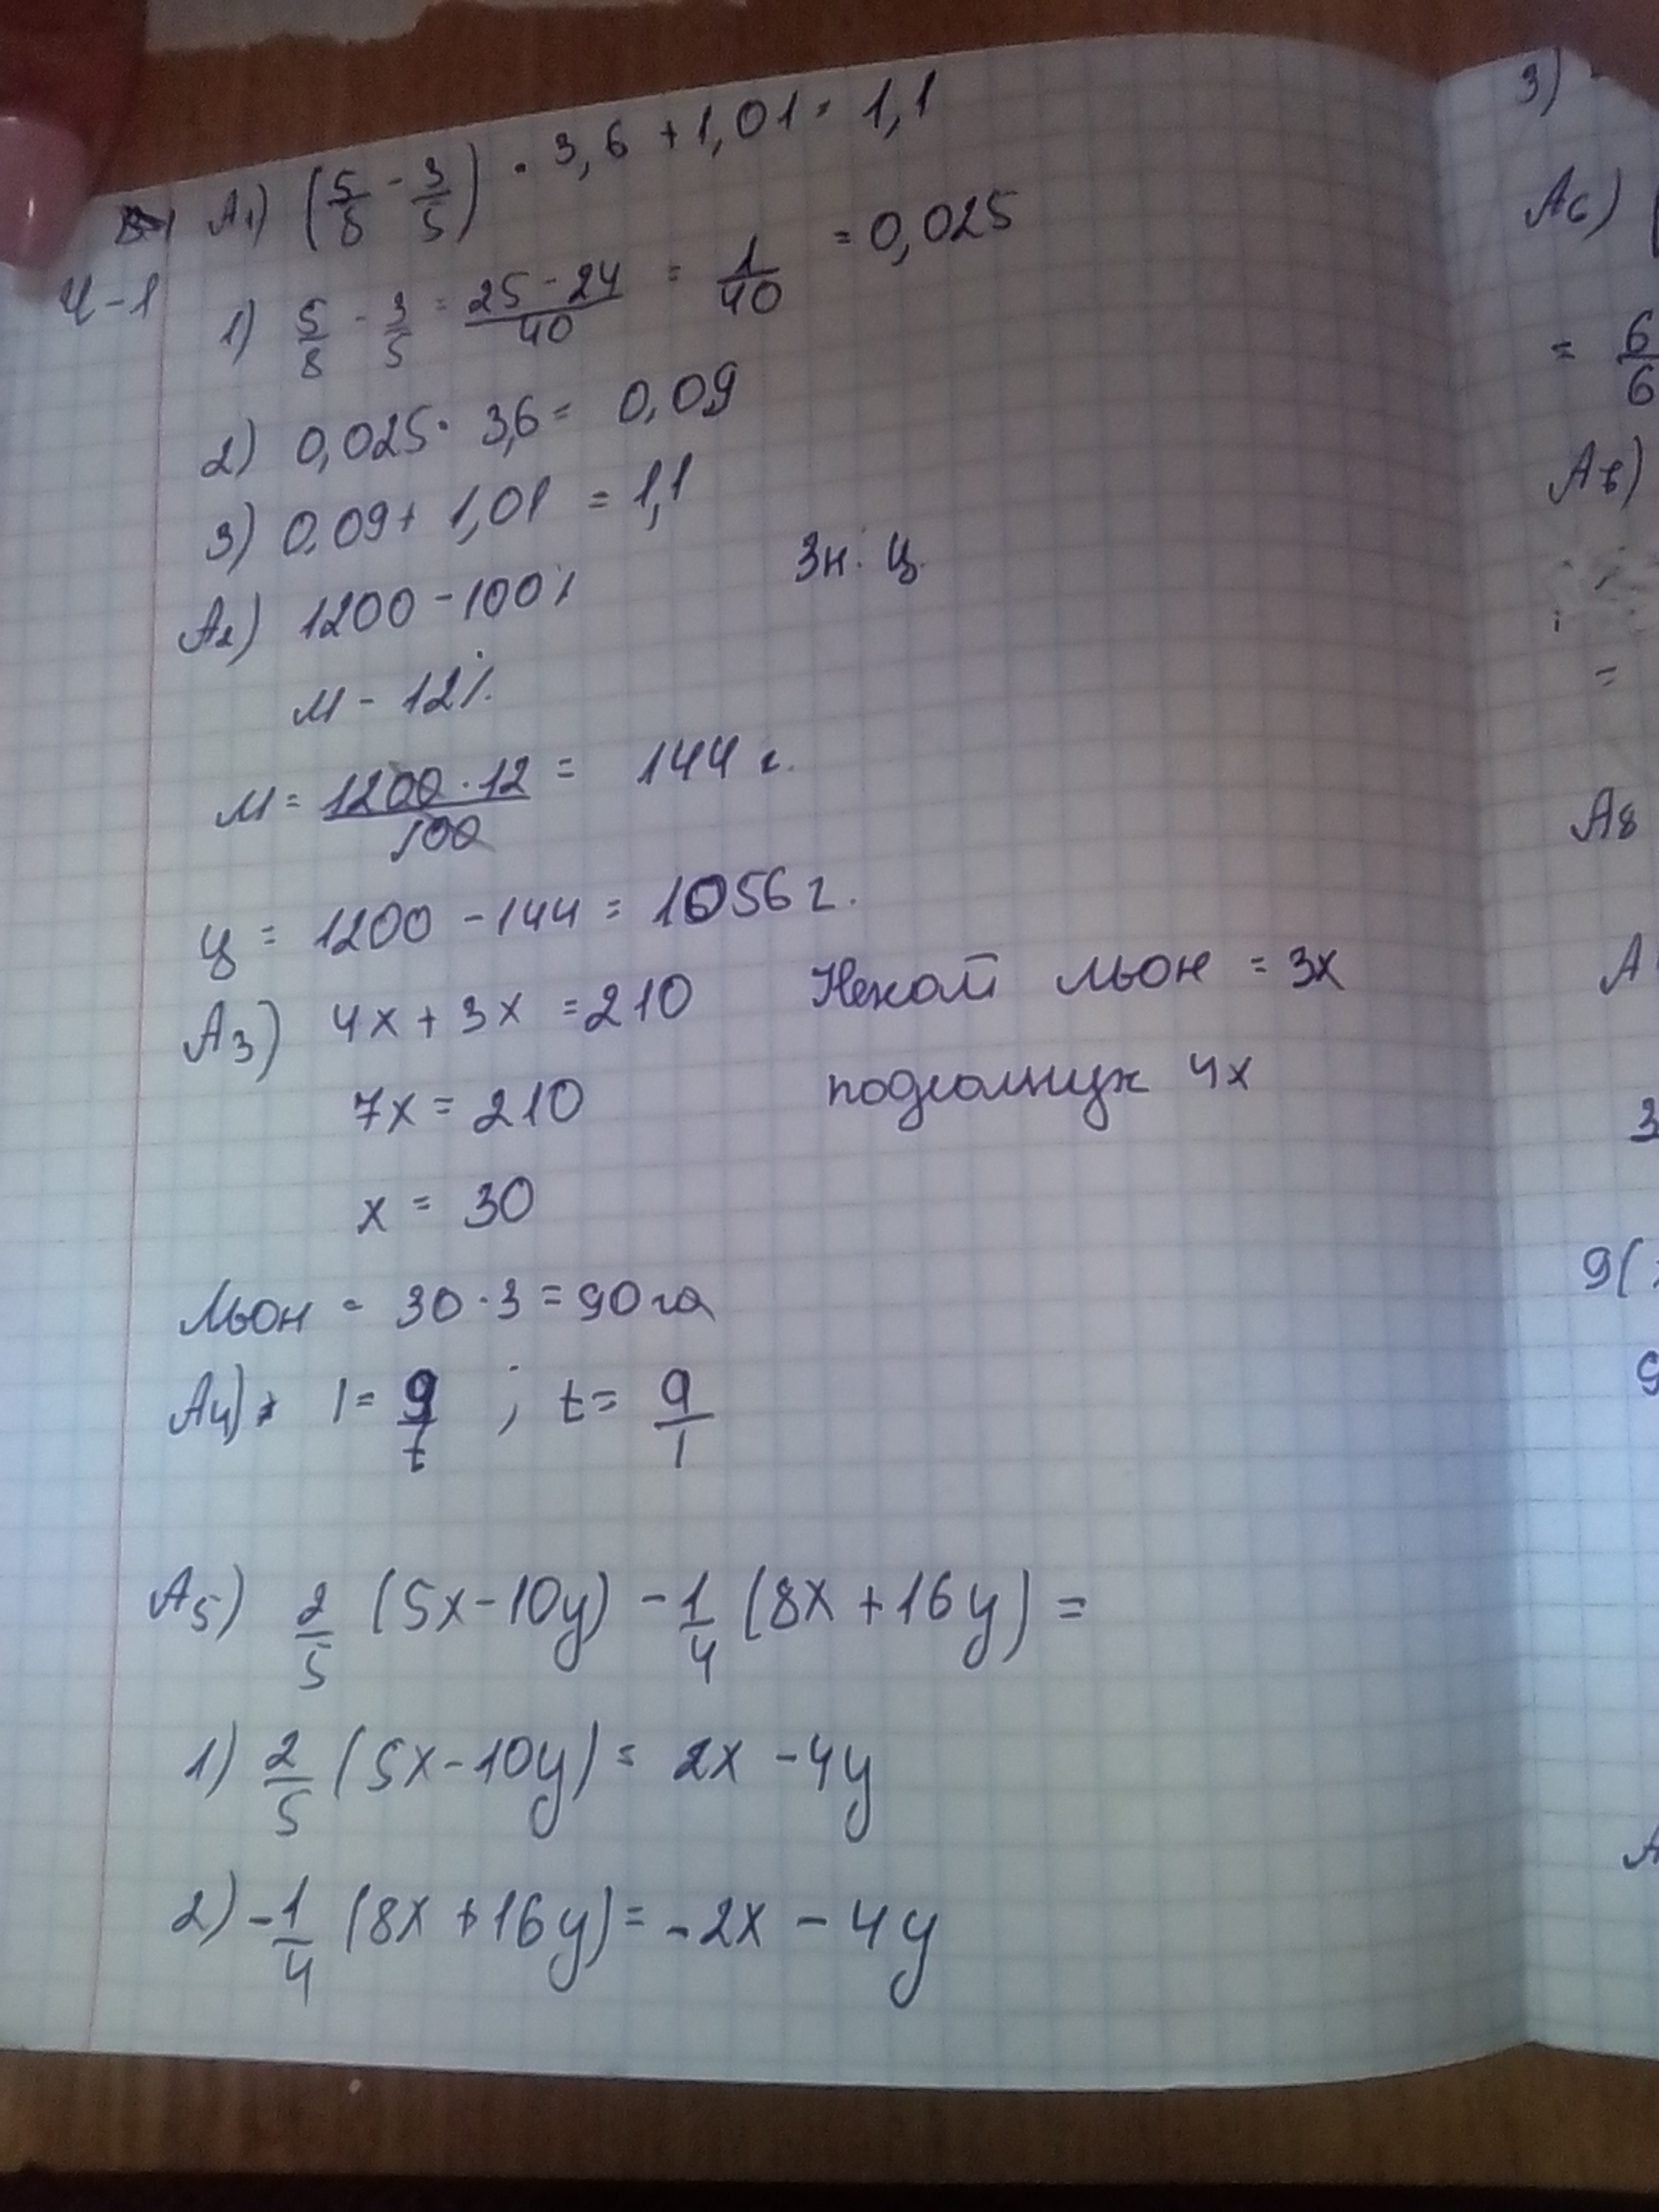 A1) (5/8 - 3/5) · 3,6 + 1,01 = 1,1
Ч-1
1) 5/8 - 3/5 = (25-24)/40 = 1/40 = 0,025
2) 0,025 · 3,6 = 0,09
3) 0,09 + 1,01 = 1,1
A2) 1200 - 100%
Зн. ц.
м - 12%
м = (1200 · 12)/100 = 144 г.
ц = 1200 - 144 = 1056 г.
A3) 4x + 3x = 210 Нехай льон = 3x
7x = 210 подсолнух 4x
x = 30
Льон = 30 · 3 = 90 га
A4) 1 = 9/t ; t = 9/1
A5) 2/5 (5x - 10y) - 1/4 (8x + 16y) =
1) 2/5 (5x - 10y) = 2x - 4y
2) -1/4 (8x + 16y) = -2x - 4y
3)
A6)
= 6/6
=
A8
A
3
9(
9
A